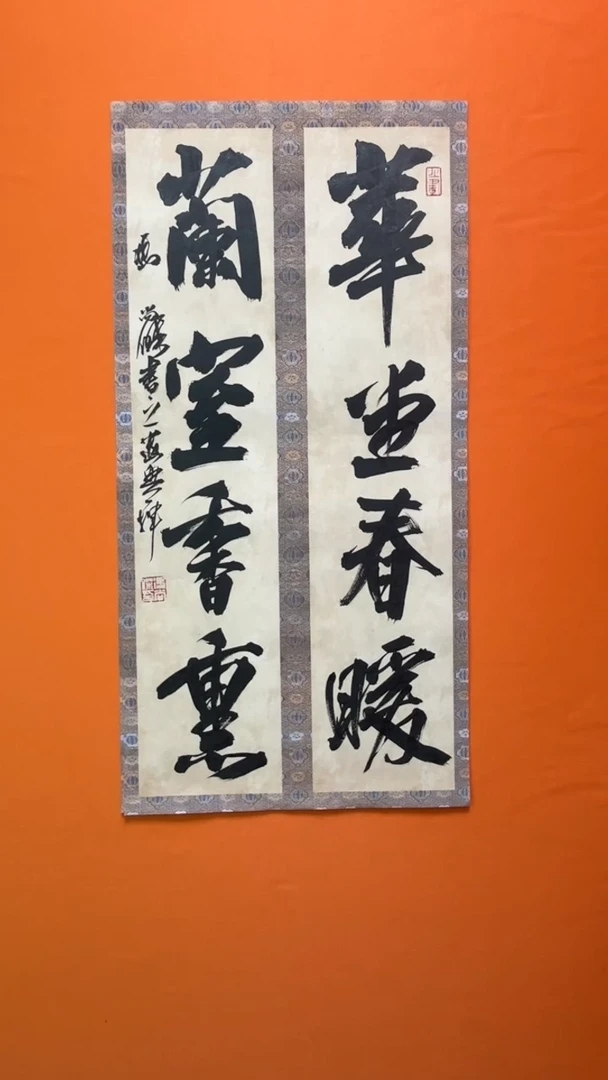 華堂春暖
蘭室香熏
書